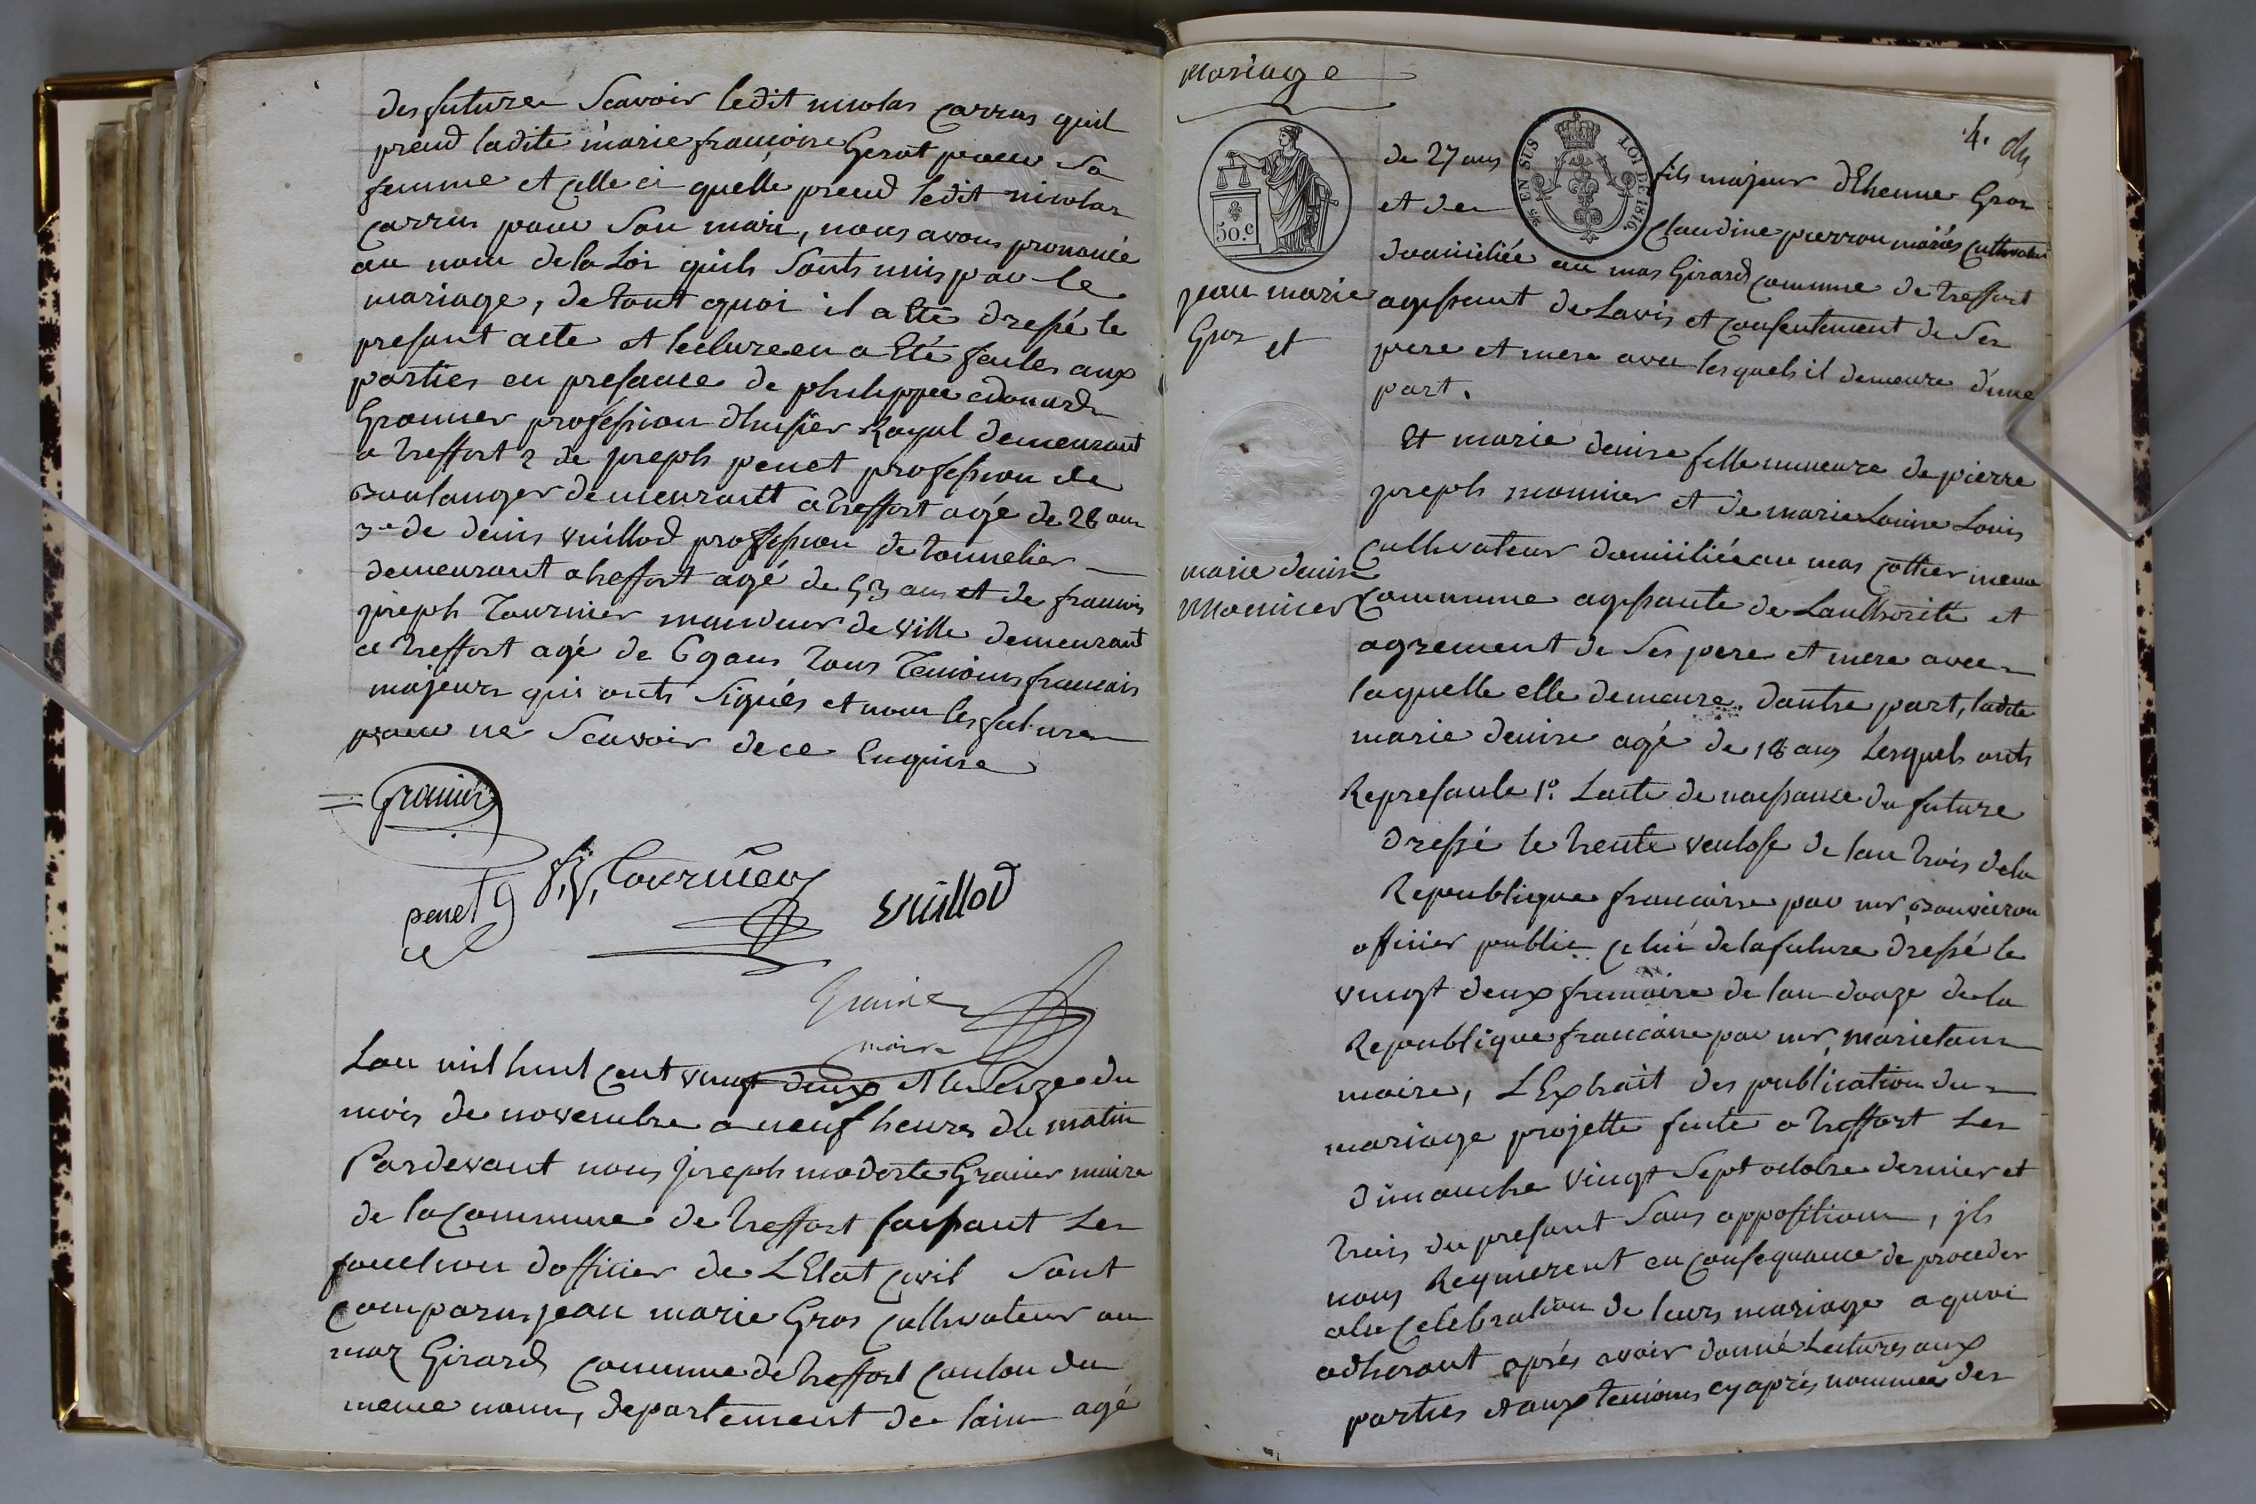 des futures Scavoir ledit nicolas Carrus quil
prend ladite marie francoise Gerat pour Sa
femme et celle ci quelle prend ledit nicolas
Carrus pour Son mari, nous avons prononcé
au nom de la Loi quils Sonts unis par le
mariage, de tout quoi il a été dressé le
presant acte et lecture en a été faites aux
parties en presance de philippe edouard
Granier profession dhuisier Royal demeurant
a treffort 2 de joseph penet profession de
Boulanger demeurant a treffort agé de 28 ans
3e de denis vuillod proffession de tonnelier
demeurant a treffort agé de 53 ans et de francois
joseph Tournier mandeur de ville demeurant
a treffort agé de 69 ans tous Temoins francais
majeurs qui onts Signés et non les futures
pour ne Scavoir de ce Enquise
Granier
penet
f. j. Tournier
vuillod
Granier
maire
Lan mil huit cent vingt deux et le onze du
mois de novembre a neuf heures du matin
Pardevant nous joseph modeste Granier maire
de la Commune de treffort faisant Les
fonction dofficier de LEtat Civil Sont
comparus jean marie Gros Cultivateur au
maz Girard Commune de treffort Canton du
meme nom, departement de lain agé
Mariage
4.
50.c
25 EN SUS
LOI DE 1816
de 27 ans fils majeur dEtienne Gros
et de Claudine pierron mariés Cultivateurs
domiciliée au mas Girard commune de treffort
agissant de Lavis et consentement de Ses
pere et mere avec lesquels il demeure dune
part.
jean marie
Gros et
Et marie denise fille mineure de pierre
joseph monnier et de marie Louise Louis
Cultivateur domiciliée au mas cottier meme
Commune agissante de Lauthorité et
agrement de Ses pere et mere avec
laquelle elle demeure. dautre part, ladite
marie denise agé de 18 ans Lesquels onts
marie denise
Monnier
Represanté 1o. Lacte de naissance du future
dressé le trente ventose de lan trois de la
Republique francaise par mr Bouveiron
officier public celui de la future dressé le
vingt deux frimaire de lan douze de la
Republique francaise par mr, marietan
maire, LExtrait des publication du
mariage projetté faite a treffort Les
dimanche vingt Sept octobre dernier et
trois du presant Sans opposition, jls
nous Requierent en Consequance de proceder
a la Celebration de leurs mariage a quoi
adherant aprés avoir donné Lectures aux
parties et aux temoins cy aprés nommée des